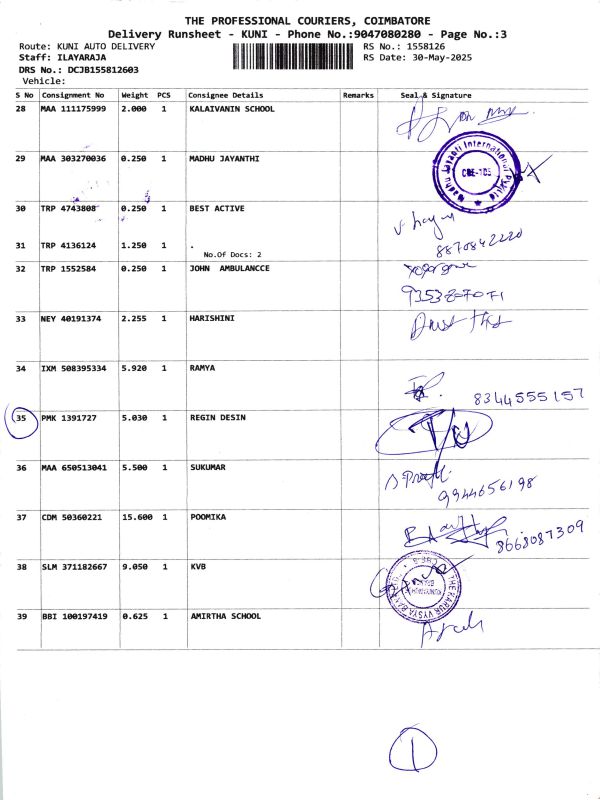 THE PROFESSIONAL COURIERS, COIMBATORE
Delivery Runsheet - KUNI - Phone No.:9047080280 - Page No.:3
Route: KUNI AUTO DELIVERY RS No.: 1558126
Staff: ILAYARAJA RS Date: 30-May-2025
DRS No.: DCJB155812603
Vehicle:
S No Consignment No Weight PCS Consignee Details Remarks Seal & Signature
28 MAA 111175999 2.000 1 KALAIVANIN SCHOOL
29 MAA 303270036 0.250 1 MADHU JAYANTHI
Madhu Jayanti International Pvt Ltd
CBE-105
30 TRP 4743808 0.250 1 BEST ACTIVE
31 TRP 4136124 1.250 1 .
8870842220
No.Of Docs: 2
32 TRP 1552584 0.250 1 JOHN AMBULANCCE
33 NEY 40191374 2.255 1 HARISHINI
34 IXM 508395334 5.920 1 RAMYA
8344555157
35 PMK 1391727 5.030 1 REGIN DESIN
36 MAA 650513041 5.500 1 SUKUMAR
9944656198
37 CDM 50360221 15.600 1 POOMIKA
8668087309
38 SLM 371182667 9.050 1 KVB
THE KARUR VYSYA BANK
39 BBI 100197419 0.625 1 AMIRTHA SCHOOL
1